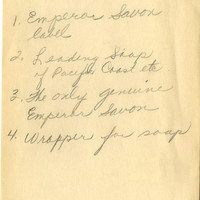 1. Emperor Savon
Label
2. Leading Soap
of Pacific Coast etc
3. The only genuine
Emperor Savon
4. Wrapper for soap